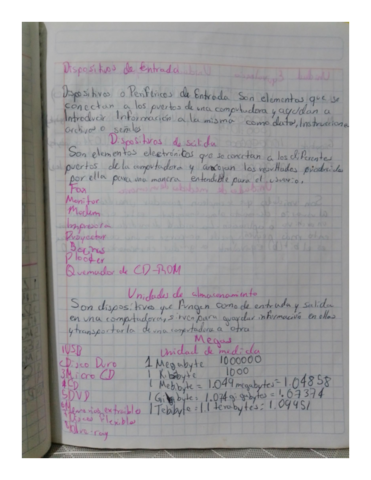 Dispositivos de Entrada
Dispositivos o Periféricos de Entrada Son elementos que se
conectan a los puertos de una computadora y ayudan a
Introducir Información a la misma como datos, Instrucciones
archivo o
Dispositivos de salida
Son elementos electrónicos que se conectan a los diferentes
puertos de la computadora y los resultados
por ella para una manera entendible para el usuario.
Fax
Monitor
Modem
Impresora
Proyector
Bocinas
Plooter
Quemador de CD-ROM
Unidades de almacenamiento
Son dispositivos que fungen como de entrada y salida
en una computadora, sirven para guardar información en ellas
y transportarla de una computadora a otra
Megas
1USB Unidad de medida
2Disco Duro 1 Megabyte 1000000
3Micro CD 1 Kilobyte 1000
1 Mebibyte = 1.049 megabytes = 1.04858
5DVD 1 Gibibyte = 1.074 gigabytes = 1.07374
extraible 1 Tebibyte = 1.1 terabytes = 1.09951
Flexibles